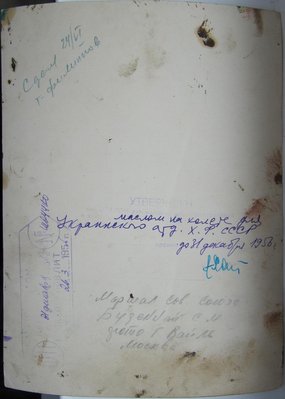 Сдал 24/VI
т. Филатов
УТВЕРЖ
маслом на холсте для
Украинского отд. Х.Ф. СССР
до 31 декабря 1956 г.
26 3. 1956
Маршал Сов Союза
Буденный С М
фото Г Вайля
Москва